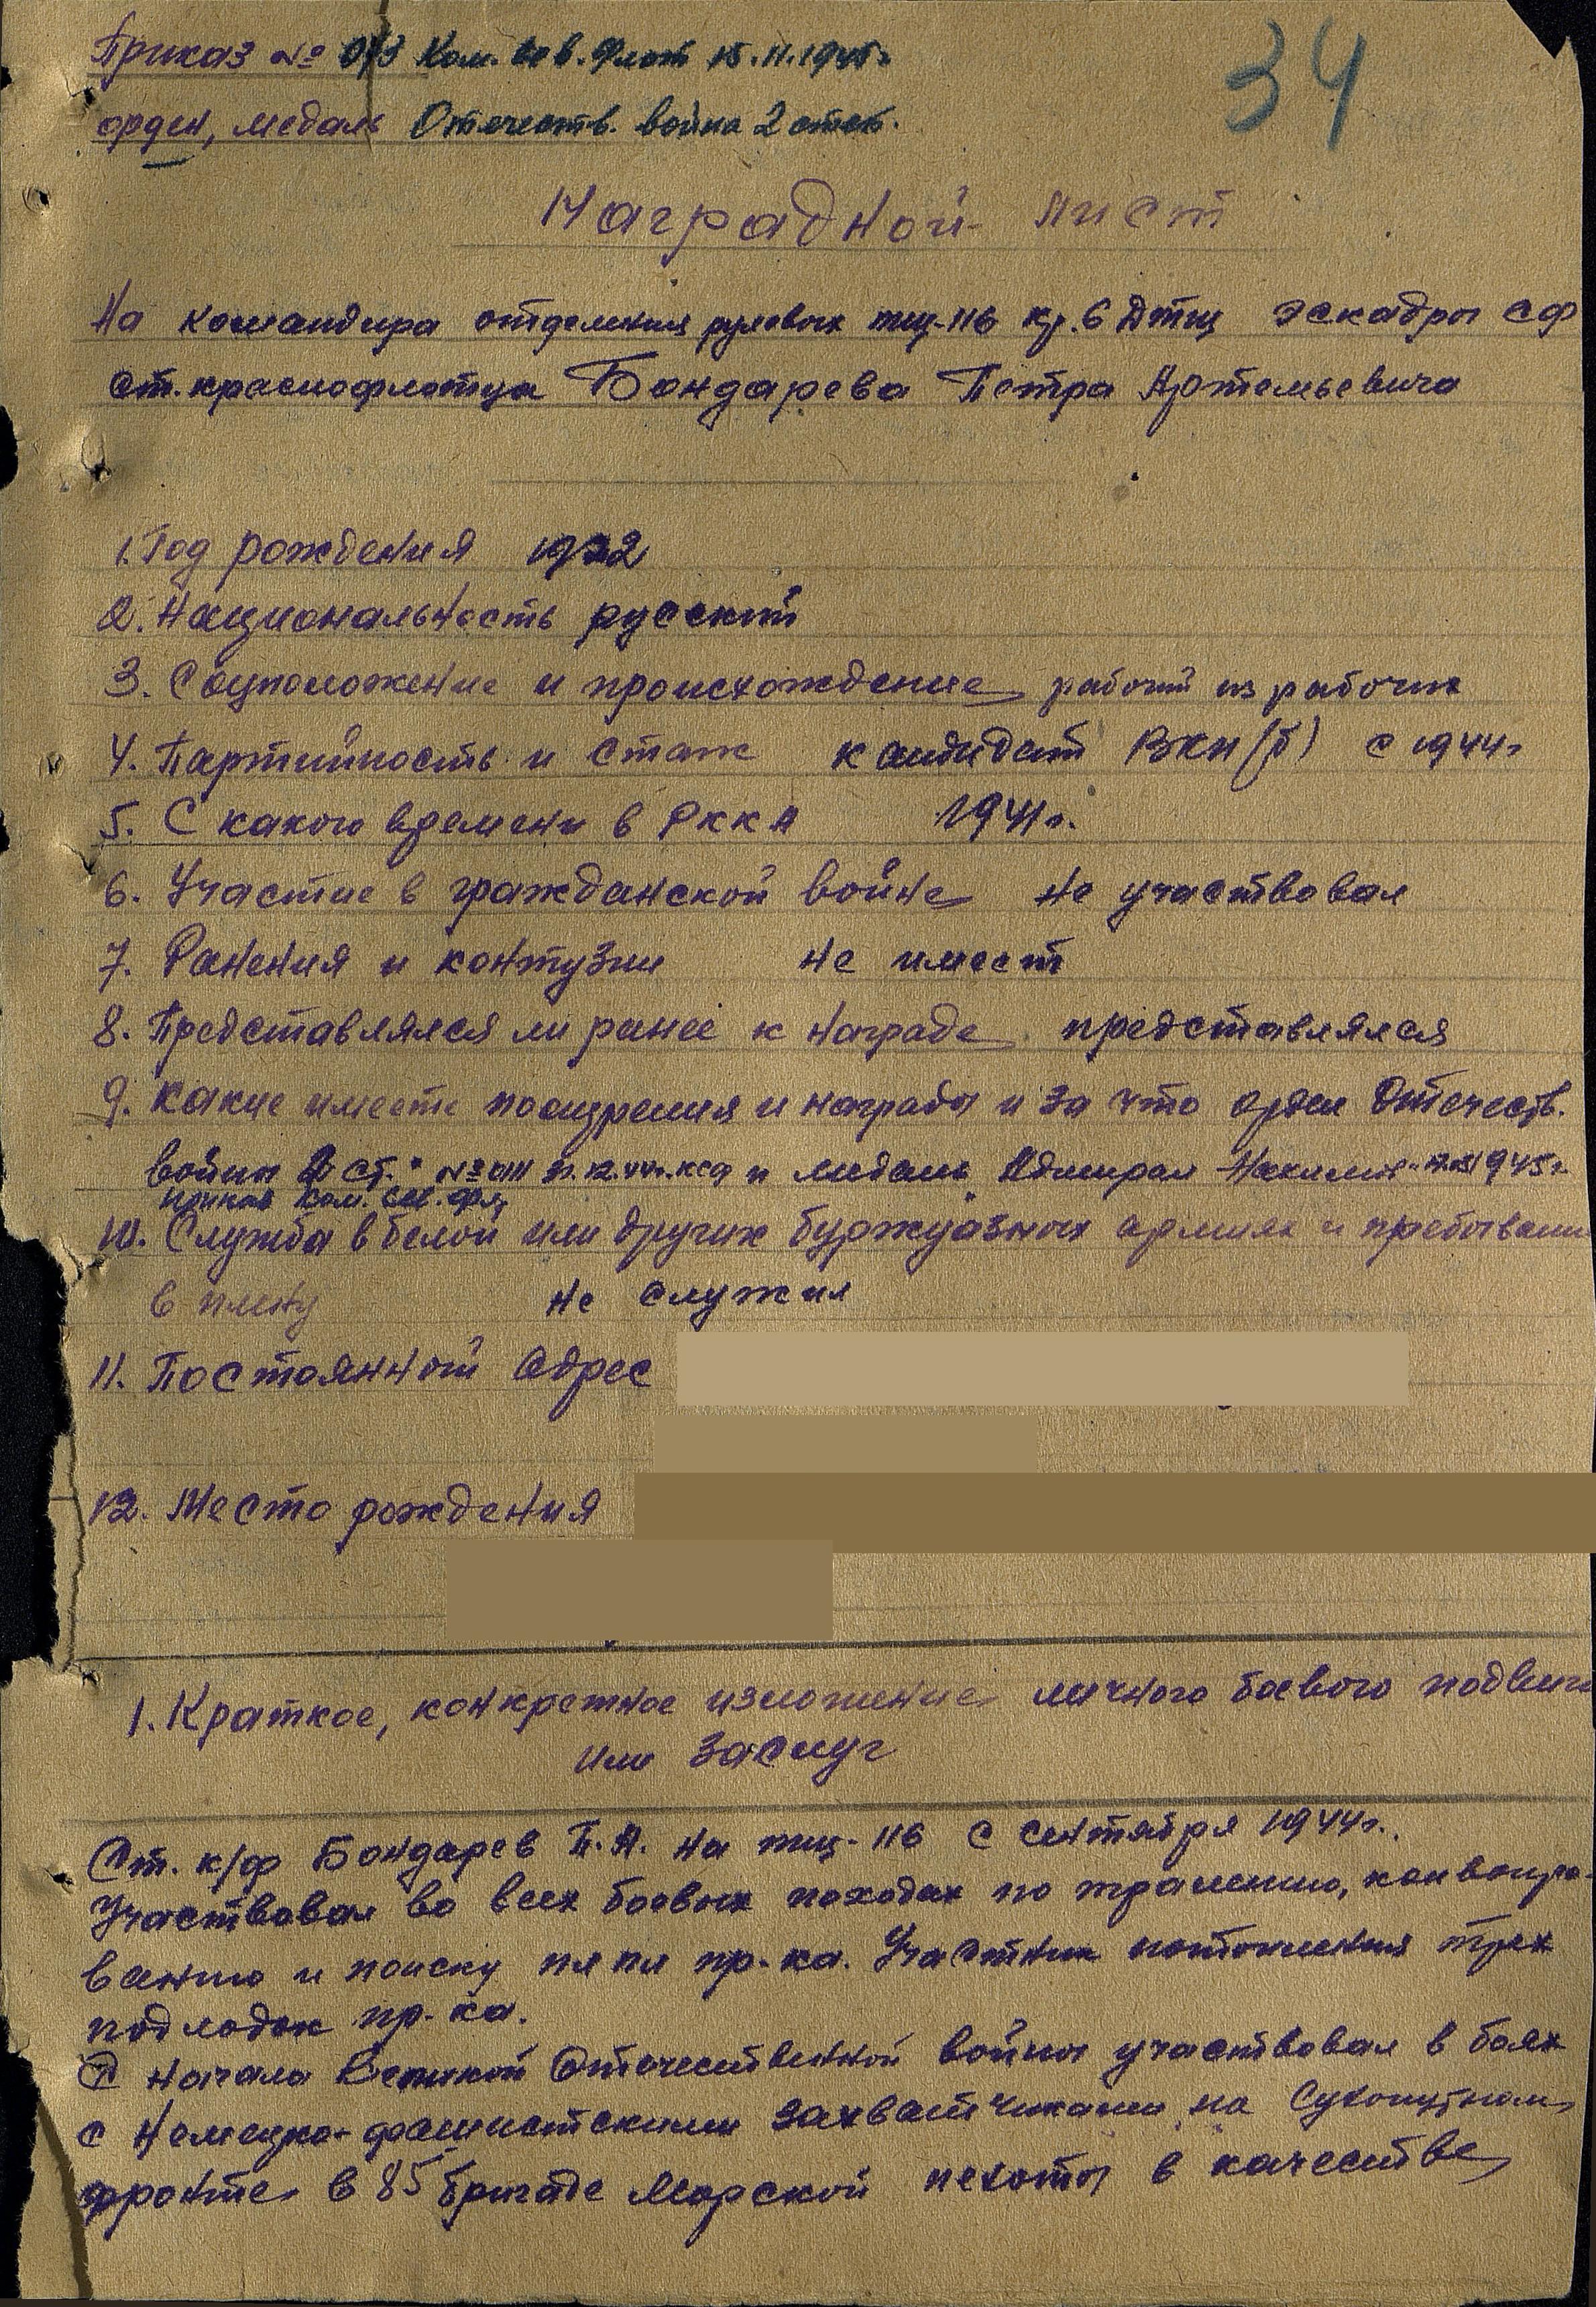 Приказ № 0/3 Ком. Сев. Флот 15.11.1945г.
34
орден, медаль Отечеств. война 2 степ.
Наградной лист
На командира отделения рулевых тщ-116 кр. 6 Дтщ эскадры СФ
ст. краснофлотца Бондарева Петра Артемьевича
1. Год рождения 1922
2. Национальность русский
3. Соцположение и происхождение рабочий из рабочих
4. Партийность и стаж кандидат ВКП(б) с 1944г
5. С какого времени в РККА 1941г.
6. Участие в гражданской войне не участвовал
7. Ранения и контузии не имеет
8. Представлялся ли ранее к награде представлялся
9. Какие имеет поощрения и награды и за что орден Отечеств.
войны 2 ст. № 31.12.44г. и медаль Адмирал Нахимов 1945г.
приказ Ком. Сев. Фл.
10. Служба в белой или других буржуазных армиях и пребывании
в плену не служил
11. Постоянный адрес
12. Место рождения
1. Краткое, конкретное изложение личного боевого подвига
или заслуг
Ст. к/ф Бондарев П.А. на тщ-116 с сентября 1944г.
Участвовал во всех боевых походах по тралению, конвоиро-
ванию и поиску пл пл пр-ка. Участник потопления трех
подлодок пр-ка.
С начала Великой Отечественной войны участвовал в боях
с Немецко-фашистскими захватчиками на Сухопутном
фронте в 85 бригаде Морской пехоты в качестве